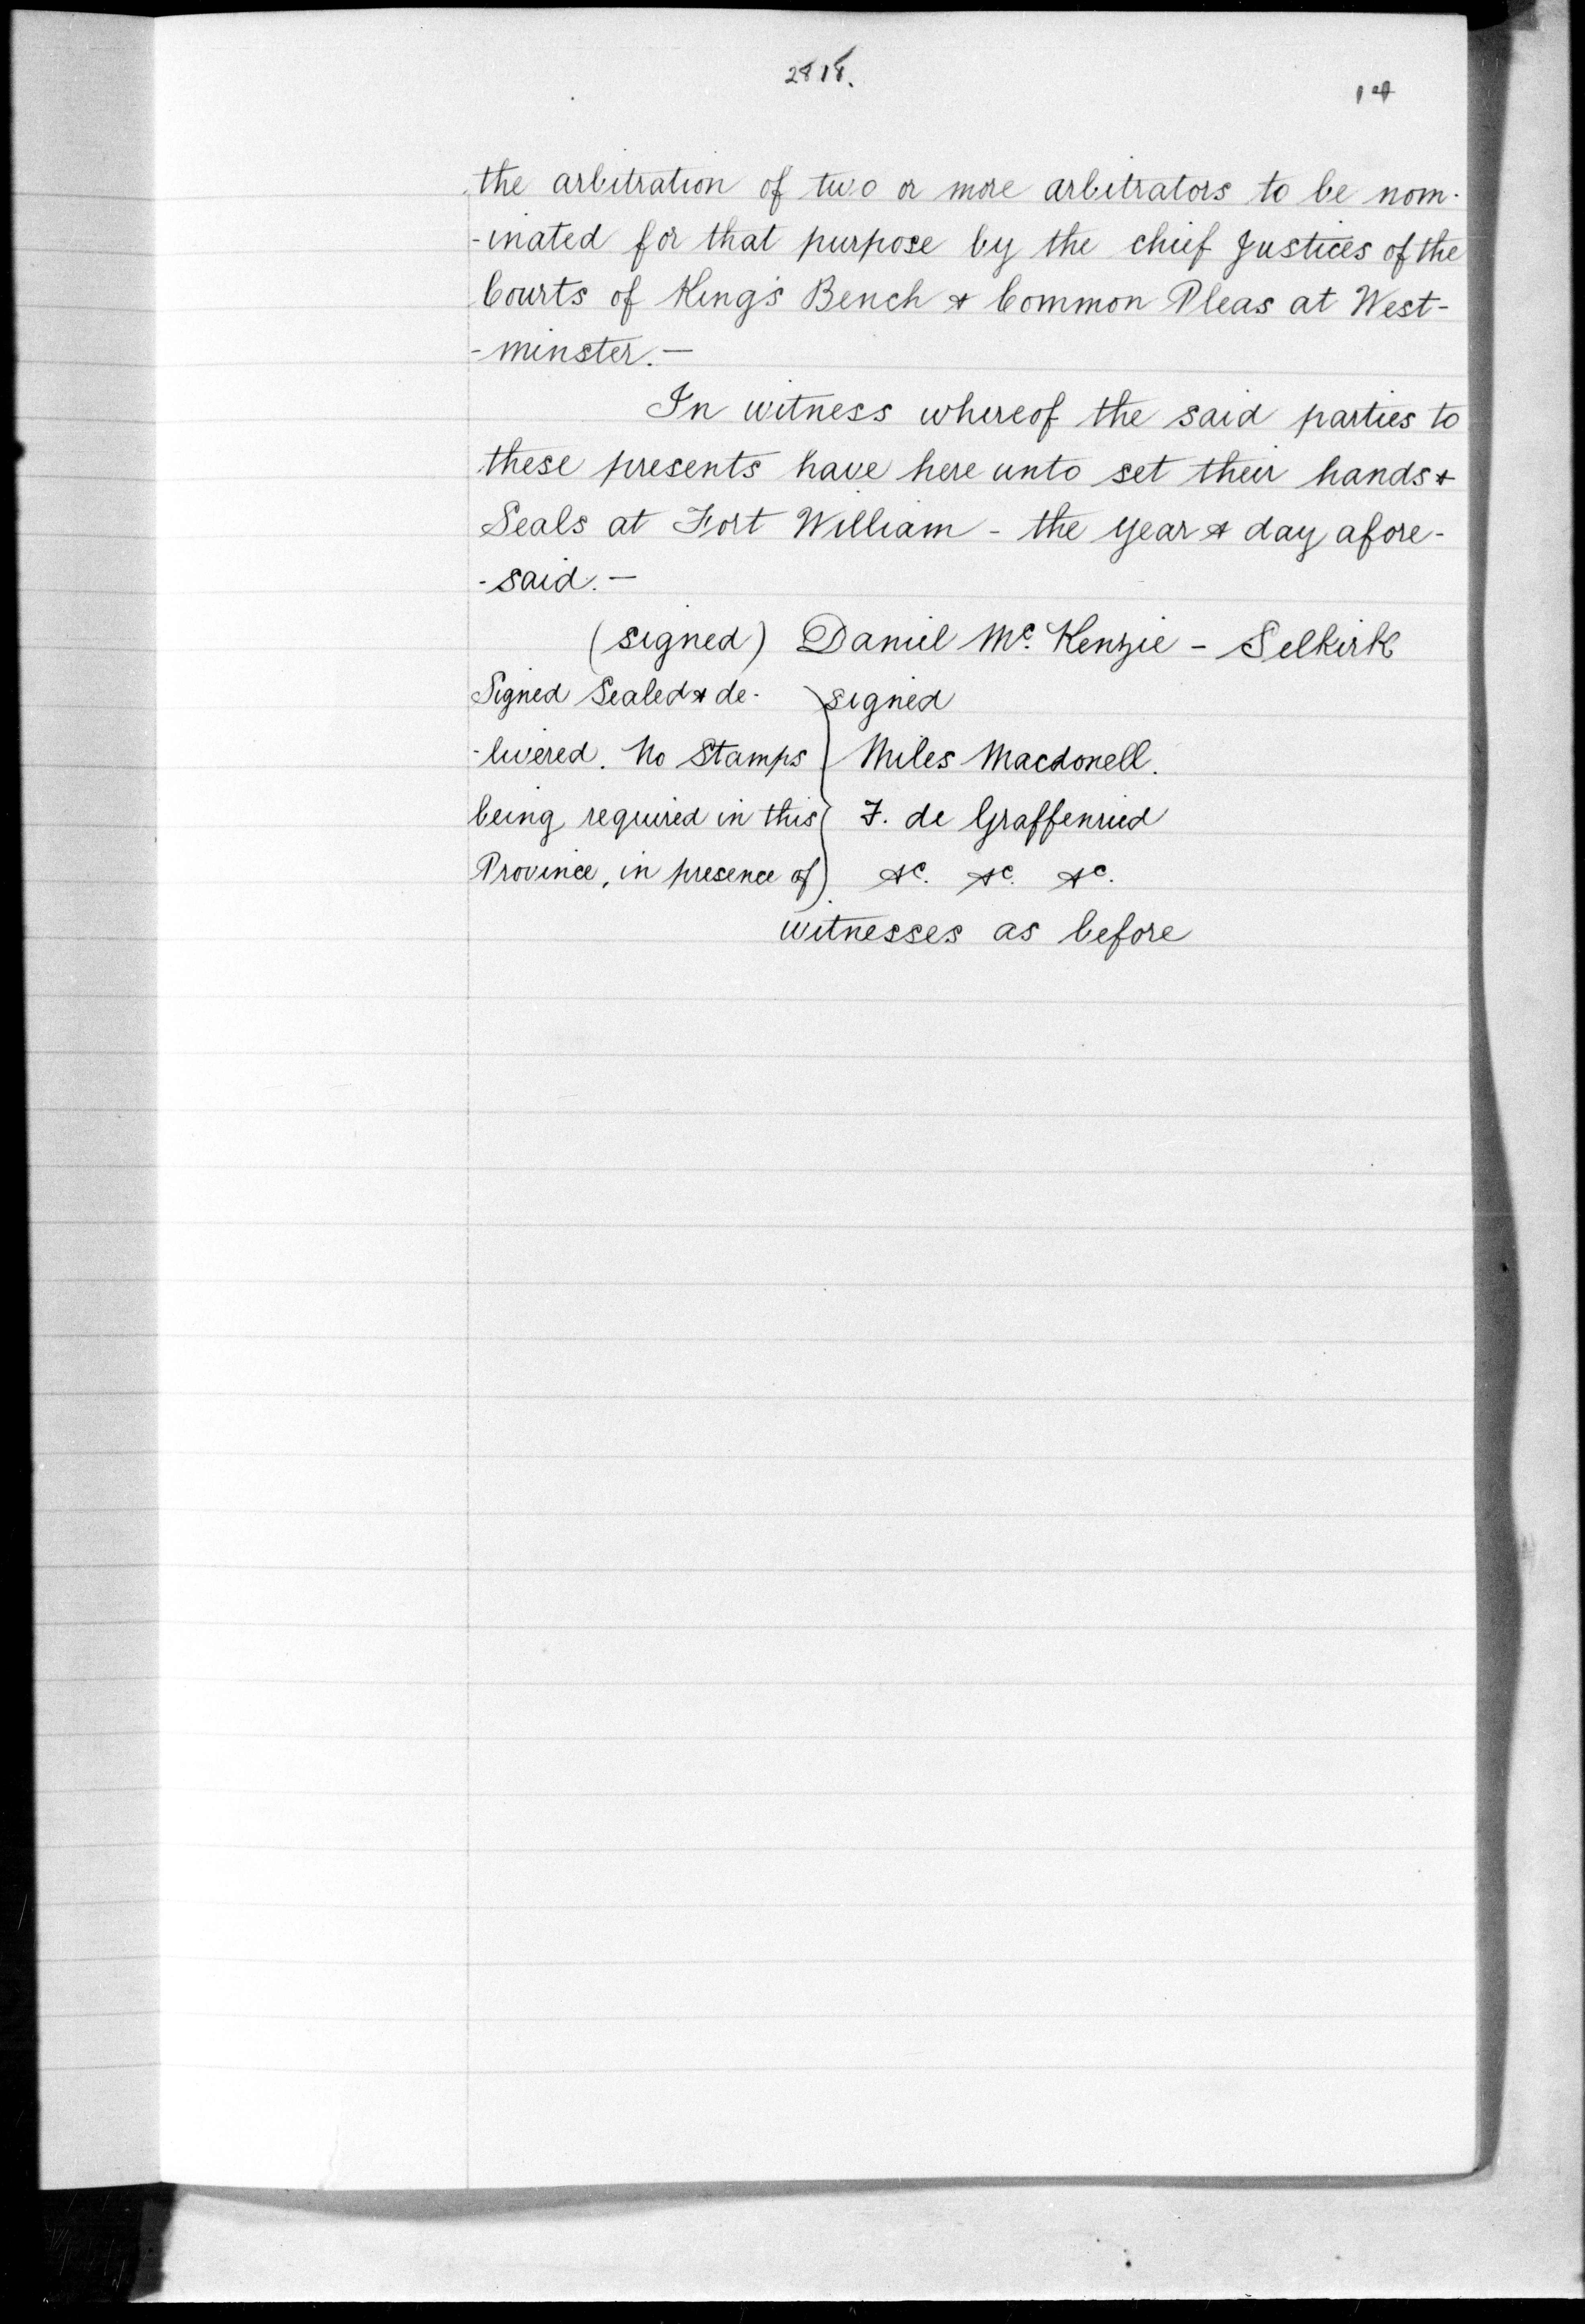 2818.
14
the arbitration of two or more arbitrators to be nom-
-inated for that purpose by the chief Justices of the
Courts of King's Bench & Common Pleas at West-
-minster.—
In witness whereof the said parties to
these presents have here unto set their hands &
Seals at Fort William - the year & day afore-
-said.—
(signed) Daniel Mc. Kenzie - Selkirk
Signed Sealed & de- signed
-livered. No Stamps Miles Macdonell.
being required in this F. de Graffenried
Province, in presence of &c. &c. &c.
witnesses as before